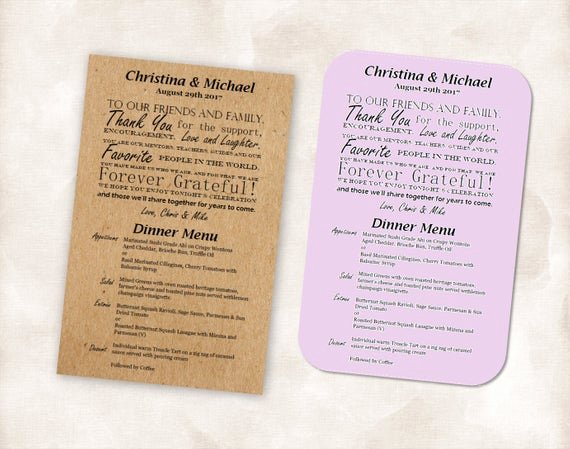 Christina & Michael
August 29th 2017
TO OUR FRIENDS AND FAMILY.
Thank You for the support,
ENCOURAGEMENT. Love and Laughter.
YOU ARE OUR MENTORS, TEACHERS, GUIDES AND OUR
Favorite PEOPLE IN THE WORLD.
YOU HAVE MADE US WHO WE ARE, AND FOR THAT WE ARE
Forever Grateful!
WE HOPE YOU ENJOY TONIGHT'S CELEBRATION
and those we'll share together for years to come.
Love, Chris & Mike
Dinner Menu
Appetizers Marinated Sushi Grade Ahi on Crispy Wontons
Aged Cheddar, Brioche Bun, Truffle Oil
or
Basil Marinated Cillegines, Cherry Tomatoes with
Balsamic Syrup
Salad Mixed Greens with oven roasted heritage tomatoes,
farmer's cheese and toasted pine nuts served
champaign vinaigrette
Entrée Butternut Squash Ravioli, Sage Sauce, Parmesan & Sun
Dried Tomato
or
Roasted Butternut Squash Lasagne with Mizuna and
Parmesan (V)
Dessert Individual warm Treacle Tart on a zig zag of caramel
sauce served with pouring cream
Followed by Coffee
Christina & Michael
August 29th 2017
TO OUR FRIENDS AND FAMILY.
Thank You for the support,
ENCOURAGEMENT. Love and Laughter.
YOU ARE OUR MENTORS, TEACHERS, GUIDES AND OUR
Favorite PEOPLE IN THE WORLD.
YOU HAVE MADE US WHO WE ARE, AND FOR THAT WE ARE
Forever Grateful!
WE HOPE YOU ENJOY TONIGHT'S CELEBRATION
and those we'll share together for years to come.
Love, Chris & Mike
Dinner Menu
Appetizers Marinated Sushi Grade Ahi on Crispy Wontons
Aged Cheddar, Brioche Bun, Truffle Oil
or
Basil Marinated Cillegines, Cherry Tomatoes with
Balsamic Syrup
Salad Mixed Greens with oven roasted heritage tomatoes,
farmer's cheese and toasted pine nuts served
champaign vinaigrette
Entrée Butternut Squash Ravioli, Sage Sauce, Parmesan & Sun
Dried Tomato
or
Roasted Butternut Squash Lasagne with Mizuna and
Parmesan (V)
Dessert Individual warm Treacle Tart on a zig zag of caramel
sauce served with pouring cream
Followed by Coffee